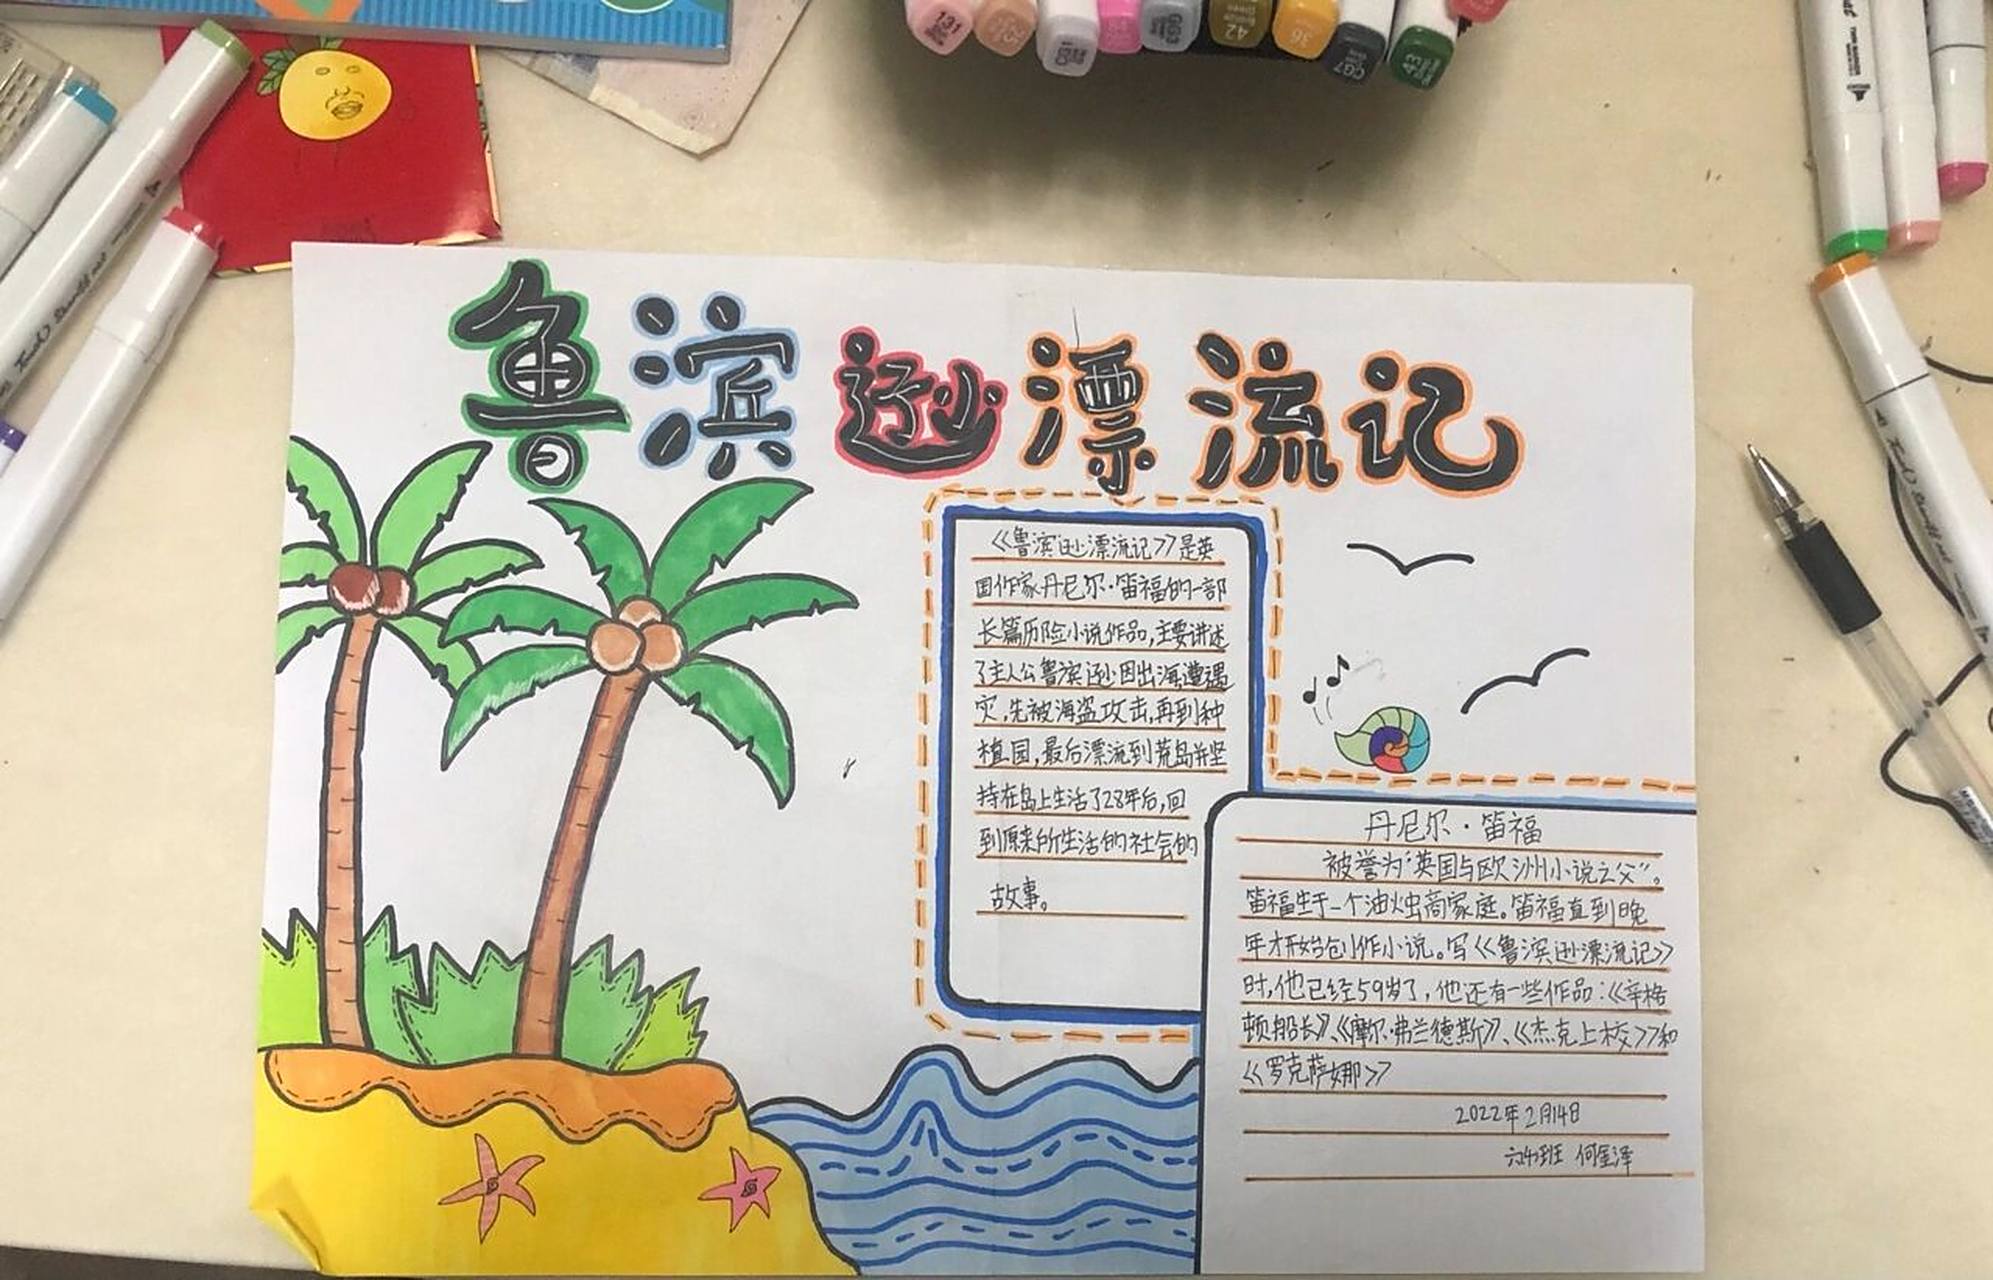 131
42
36
CG7
鲁滨逊漂流记
《鲁滨逊漂流记》是英
国作家丹尼尔·笛福的一部
长篇历险小说作品,主要讲述
了主人公鲁滨逊因出海遭遇
灾,先被海盗攻击,再到种
植园,最后漂流到荒岛并坚
持在岛上生活了28年后,回
到原来所生活的社会的
故事。
丹尼尔·笛福
被誉为“英国与欧洲小说之父”。
笛福生于一个油烛商家庭。笛福直到晚
年才开始创作小说。写《鲁滨逊漂流记》
时,他已经59岁了,他还有一些作品:《辛格
顿船长》、《摩尔·弗兰德斯》、《杰克上校》和
《罗克萨娜》
2022年2月14日